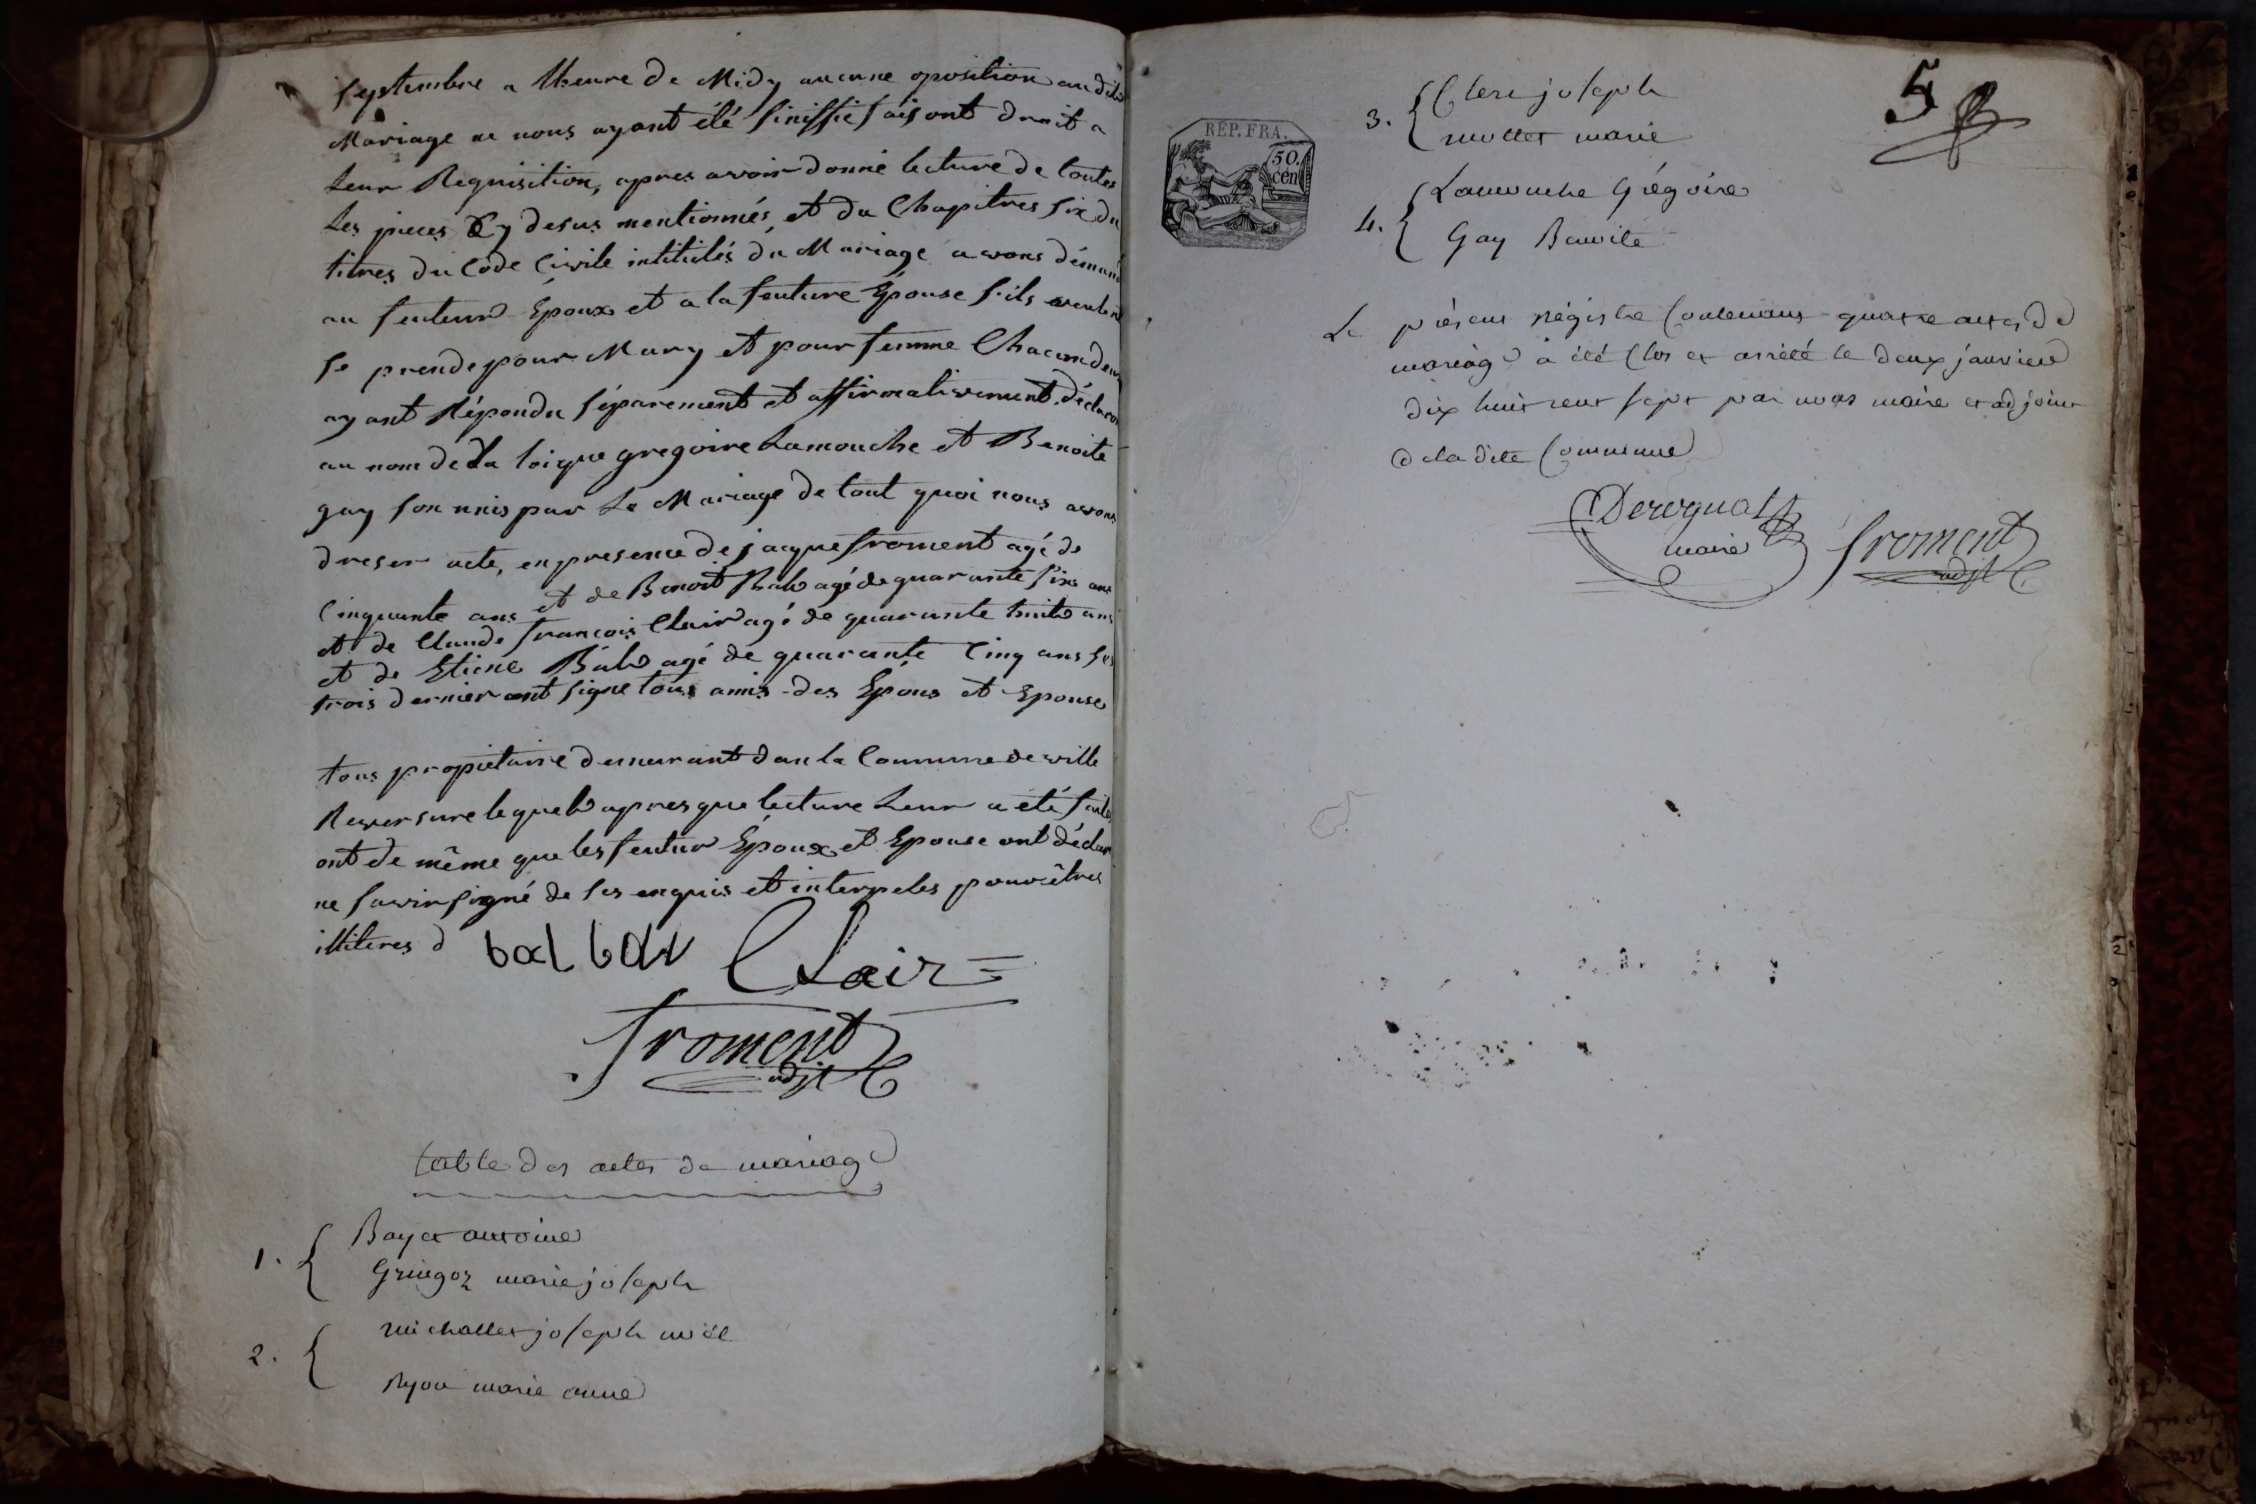 septembre a lheure de Midy aucune oposition audit
Mariage ne nous ayant été sinissié faisont droit a
leur Requisition, apres avoir donné lecture de toutes
les pieces Cy desus mentionnés, et du Chapitres six du
titres du Code Civile intitulés du Mariage avons démand
au feuteur Époux et a la feuture Épouse s'ils veulent
se prende pour Mary et pour femme Chacun deux
ayant Répondu séparement et affirmativement, déclaron
au nom de la loi que gregoire Lamouche et Benoite
gay son unis par Le Mariage de tout quoi nous avons
dreser acte, en presence de jacque froment agé de
Cinquante ans et de Benoit Balb agé de quarante six ans
et de Claude françois Clair agé de quarante huit ans
et de Etiene Balb agé de quarante Cinq ans les
trois dernier ont signe tous amis des Époux et Epouse
tous propietaire demeurant dan la Commune de ville
Reversure lequel apres que lecture Leur a été faite
ont de même que les feutur Époux et Epouse ont déclar
ne savoir signé de ses enquis et interpeles pour êtres
illiteres
balbav Clair
froment
adjt
table des actes de mariage
1. Bayet antoine
Gringoz marie joseph
2. michallet joseph noël
Ryou marie anne
RÉP. FRA.
50.
cen
5
3. Clere joseph
mollet marie
4. Lamouche Grégoire
Gay Benoite
Le présent régistre Contenant quatre actes de
mariage a été Clos et arrété le deux janvier
dix huit cent sept par nous maire et adjoint
de la dite Commune
Derognat
maire
froment
adjt